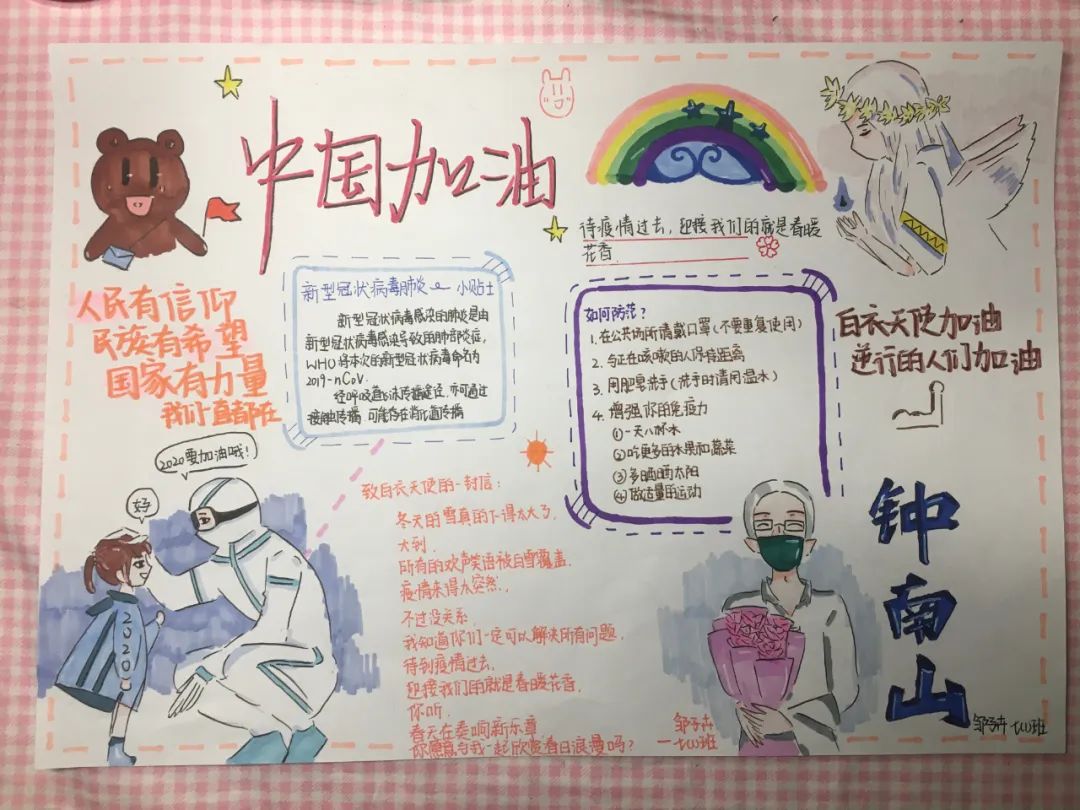 中国加油
待疫情过去，迎接我们的就是春暖
花香.
人民有信仰
民族有希望
国家有力量
我们一直都在
新型冠状病毒肺炎 小贴士
新型冠状病毒感染的肺炎是由
新型冠状病毒感染导致的肺部炎症，
WHO将本次的新型冠状病毒命名为
2019-nCoV.
经呼吸道飞沫传播途径，亦可通过
接触传播，可能存在粪口道传播
如何防范？
1.在公共场所请戴口罩(不要重复使用)
2.与正在咳嗽的人保持距离
3.用肥皂洗手(洗手时请用温水)
4.增强你的免疫力
①一天八杯水
②吃更多的水果和蔬菜
③多晒晒太阳
④做适量的运动
白衣天使加油
逆行的人们加油
2020要加油哦!
好
2020
致白衣天使的一封信：
冬天的雪真的下得太大了，
大到，
所有的欢声笑语被白雪覆盖.
疫情来得太突然，
不过没关系，
我知道你们一定可以解决所有问题，
待到疫情过去，
迎接我们的就是春暖花香，
你听，
春天在奏响新乐章
你愿意与我一起欣赏春日浪漫吗？
钟南山
邹子卉
邹子卉